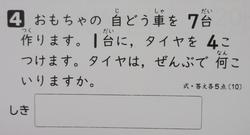 4 おもちゃの 自どう車を 7台
作ります。1台に，タイヤを 4こ
つけます。タイヤは，ぜんぶで 何こ
いりますか。
式・答え各5点(10)
しき